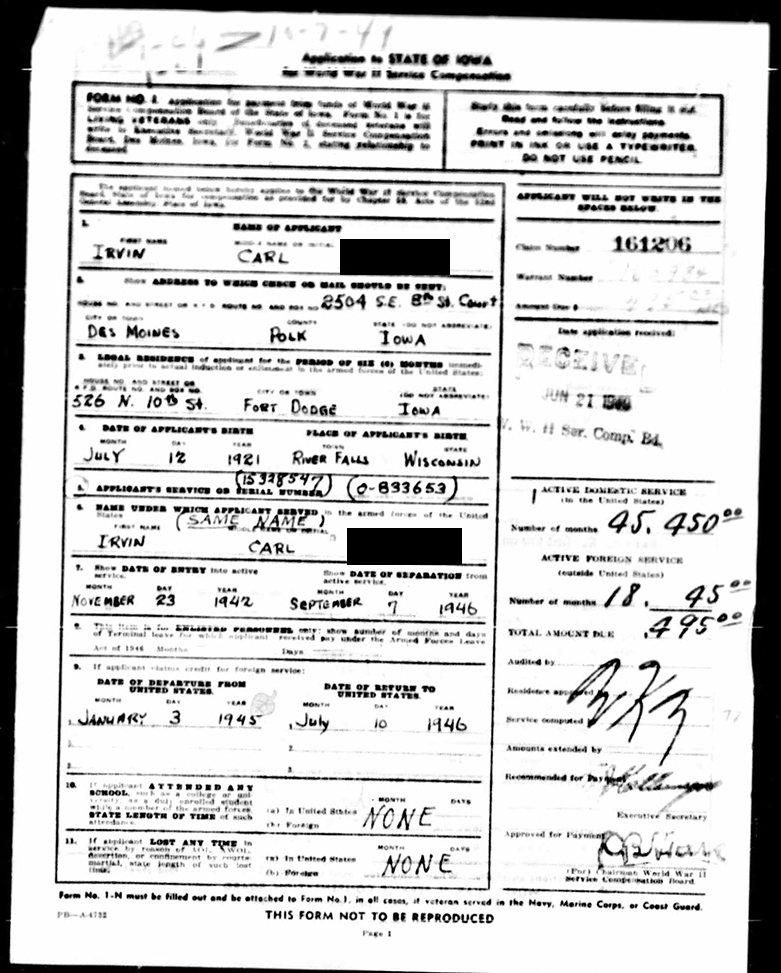 10-7-49
Application to STATE OF IOWA
for World War II Service Compensation
FORM NO. 1. Application for payment from funds of World War II
Service Compensation Board of the State of Iowa. Form No. 1 is for
LIVING VETERANS only. Beneficiaries of deceased veterans will
write to Executive Secretary, World War II Service Compensation
Board, Des Moines, Iowa, for Form No. 2, stating relationship to
deceased
Study this form carefully before filling it out.
Read and follow the instructions.
Errors and omissions will delay payments.
PRINT IN INK OR USE A TYPEWRITER.
DO NOT USE PENCIL.
The applicant named below hereby applies to the World War II Service Compensation
Board, State of Iowa for compensation as provided for by Chapter 59, Acts of the 52nd
General Assembly, State of Iowa.
1. NAME OF APPLICANT
FIRST NAME MIDDLE NAME OR INITIAL
IRVIN CARL
2. Show ADDRESS TO WHICH CHECK OR MAIL SHOULD BE SENT:
HOUSE NO. AND STREET OR R.F.D. ROUTE NO. AND BOX NO. 2504 S.E. 8th St. Court
CITY OR TOWN COUNTY STATE (DO NOT ABBREVIATE)
DES MOINES POLK IOWA
3. LEGAL RESIDENCE of applicant for the PERIOD OF SIX (6) MONTHS immedi-
ately prior to actual induction or enlistment in the armed forces of the United States:
HOUSE NO. AND STREET OR
R.F.D. ROUTE NO. AND BOX NO. CITY OR TOWN STATE (DO NOT ABBREVIATE)
526 N. 10th St. FORT DODGE IOWA
4. DATE OF APPLICANT'S BIRTH PLACE OF APPLICANT'S BIRTH
MONTH DAY YEAR TOWN STATE
JULY 12 1921 RIVER FALLS WISCONSIN
5. APPLICANT'S SERVICE OR SERIAL NUMBER (15328547) (O-833653)
6. NAME UNDER WHICH APPLICANT SERVED in the armed forces of the United
States (SAME NAME)
FIRST NAME MIDDLE NAME OR INITIAL
IRVIN CARL
7. Show DATE OF ENTRY into active
service. Show DATE OF SEPARATION from
active service.
MONTH DAY YEAR MONTH DAY YEAR
NOVEMBER 23 1942 SEPTEMBER 7 1946
8. This item is for ENLISTED PERSONNEL only: show number of months and days
of Terminal leave for which applicant received pay under the Armed Forces Leave
Act of 1946 Months Days
9. If applicant claims credit for foreign service:
DATE OF DEPARTURE FROM
UNITED STATES. DATE OF RETURN TO
UNITED STATES.
MONTH DAY YEAR MONTH DAY YEAR
1. JANUARY 3 1945 1. July 10 1946
2. 2.
3. 3.
10. If applicant ATTENDED ANY
SCHOOL, such as a college or uni-
versity, as a duly enrolled student
while a member of the armed forces,
STATE LENGTH OF TIME of such
attendance.
MONTH DAYS
(a) In United States NONE
(b) Foreign
11. If applicant LOST ANY TIME in
service by reason of AOL, AWOL,
desertion, or confinement by courts-
martial, state length of such lost
time.
MONTH DAYS
(a) In United States NONE
(b) Foreign
APPLICANT WILL NOT WRITE IN THE
SPACES BELOW.
Claim Number 161206
Warrant Number
Amount Due $
Date application received:
RECEIVE
JUN 21
W. W. II Ser. Comp. Bd.
ACTIVE DOMESTIC SERVICE
(in the United States)
Number of months 45. 450.00
ACTIVE FOREIGN SERVICE
(outside United States)
Number of months 18. 45.00
TOTAL AMOUNT DUE 495.00
Audited by
Residence approved
Service computed
Amounts extended by
Recommended for Payment
Executive Secretary
Approved for Payment
(For) Chairman World War II
Service Compensation Board.
Form No. 1-N must be filled out and be attached to Form No. 1, in all cases, if veteran served in the Navy, Marine Corps, or Coast Guard.
PB—A-4732 THIS FORM NOT TO BE REPRODUCED
Page 1